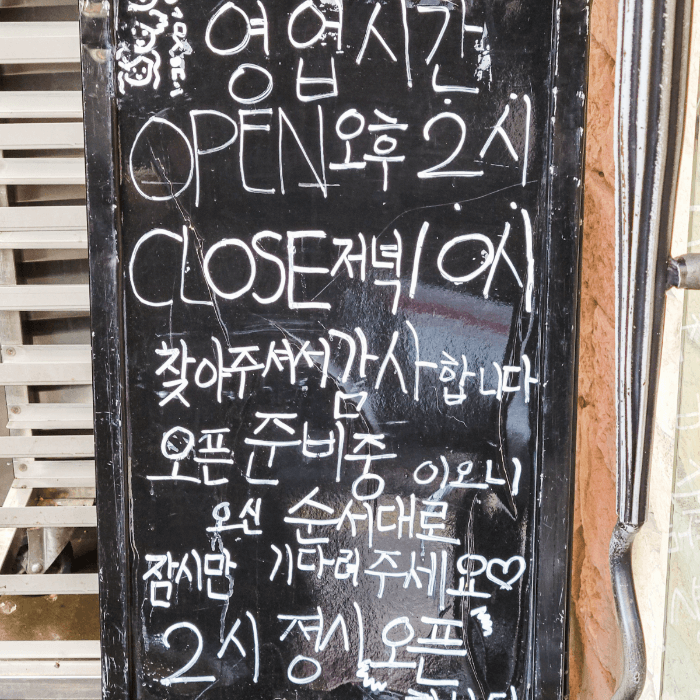 영업시간
OPEN 오후 2시
CLOSE 저녁 10시
찾아주셔서 감사합니다
오픈 준비중 이오니
오신 순서대로
잠시만 기다려주세요♡
2시 정시 오픈